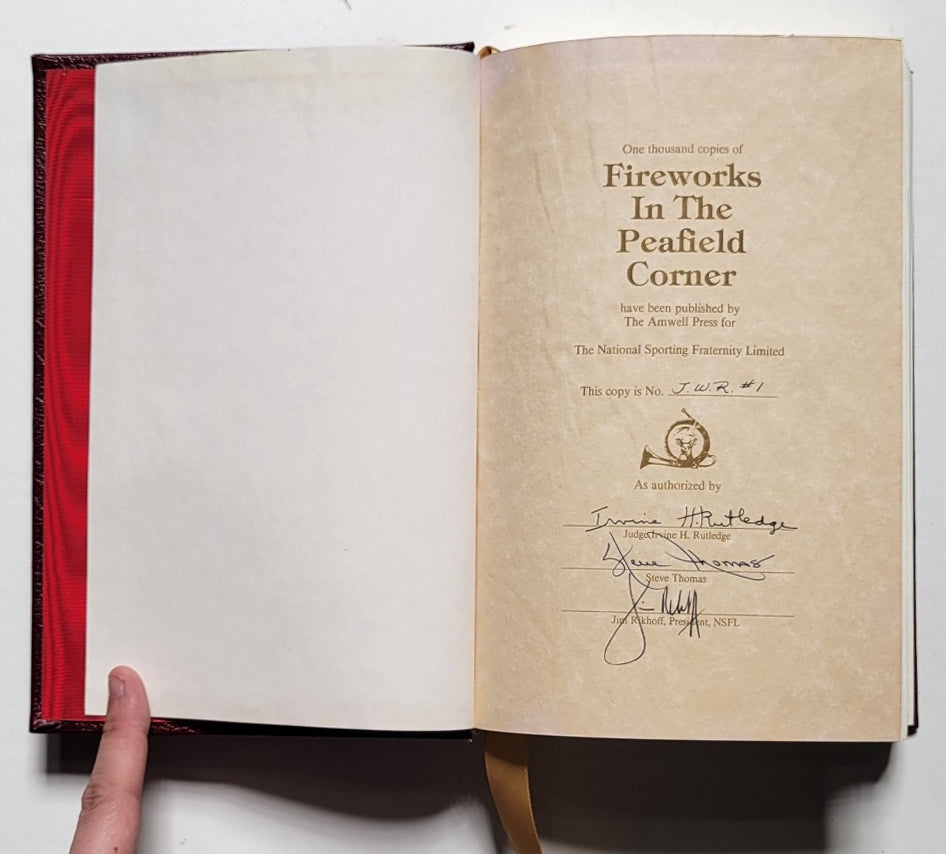 One thousand copies of
Fireworks
In The
Peafield
Corner
have been published by
The Amwell Press for
The National Sporting Fraternity Limited
This copy is No. J.W.R. #1
As authorized by
Irvine H. Rutledge
Judge Irvine H. Rutledge
Steve Thomas
Steve Thomas
Jim Rikhoff
Jim Rikhoff, President, NSFL